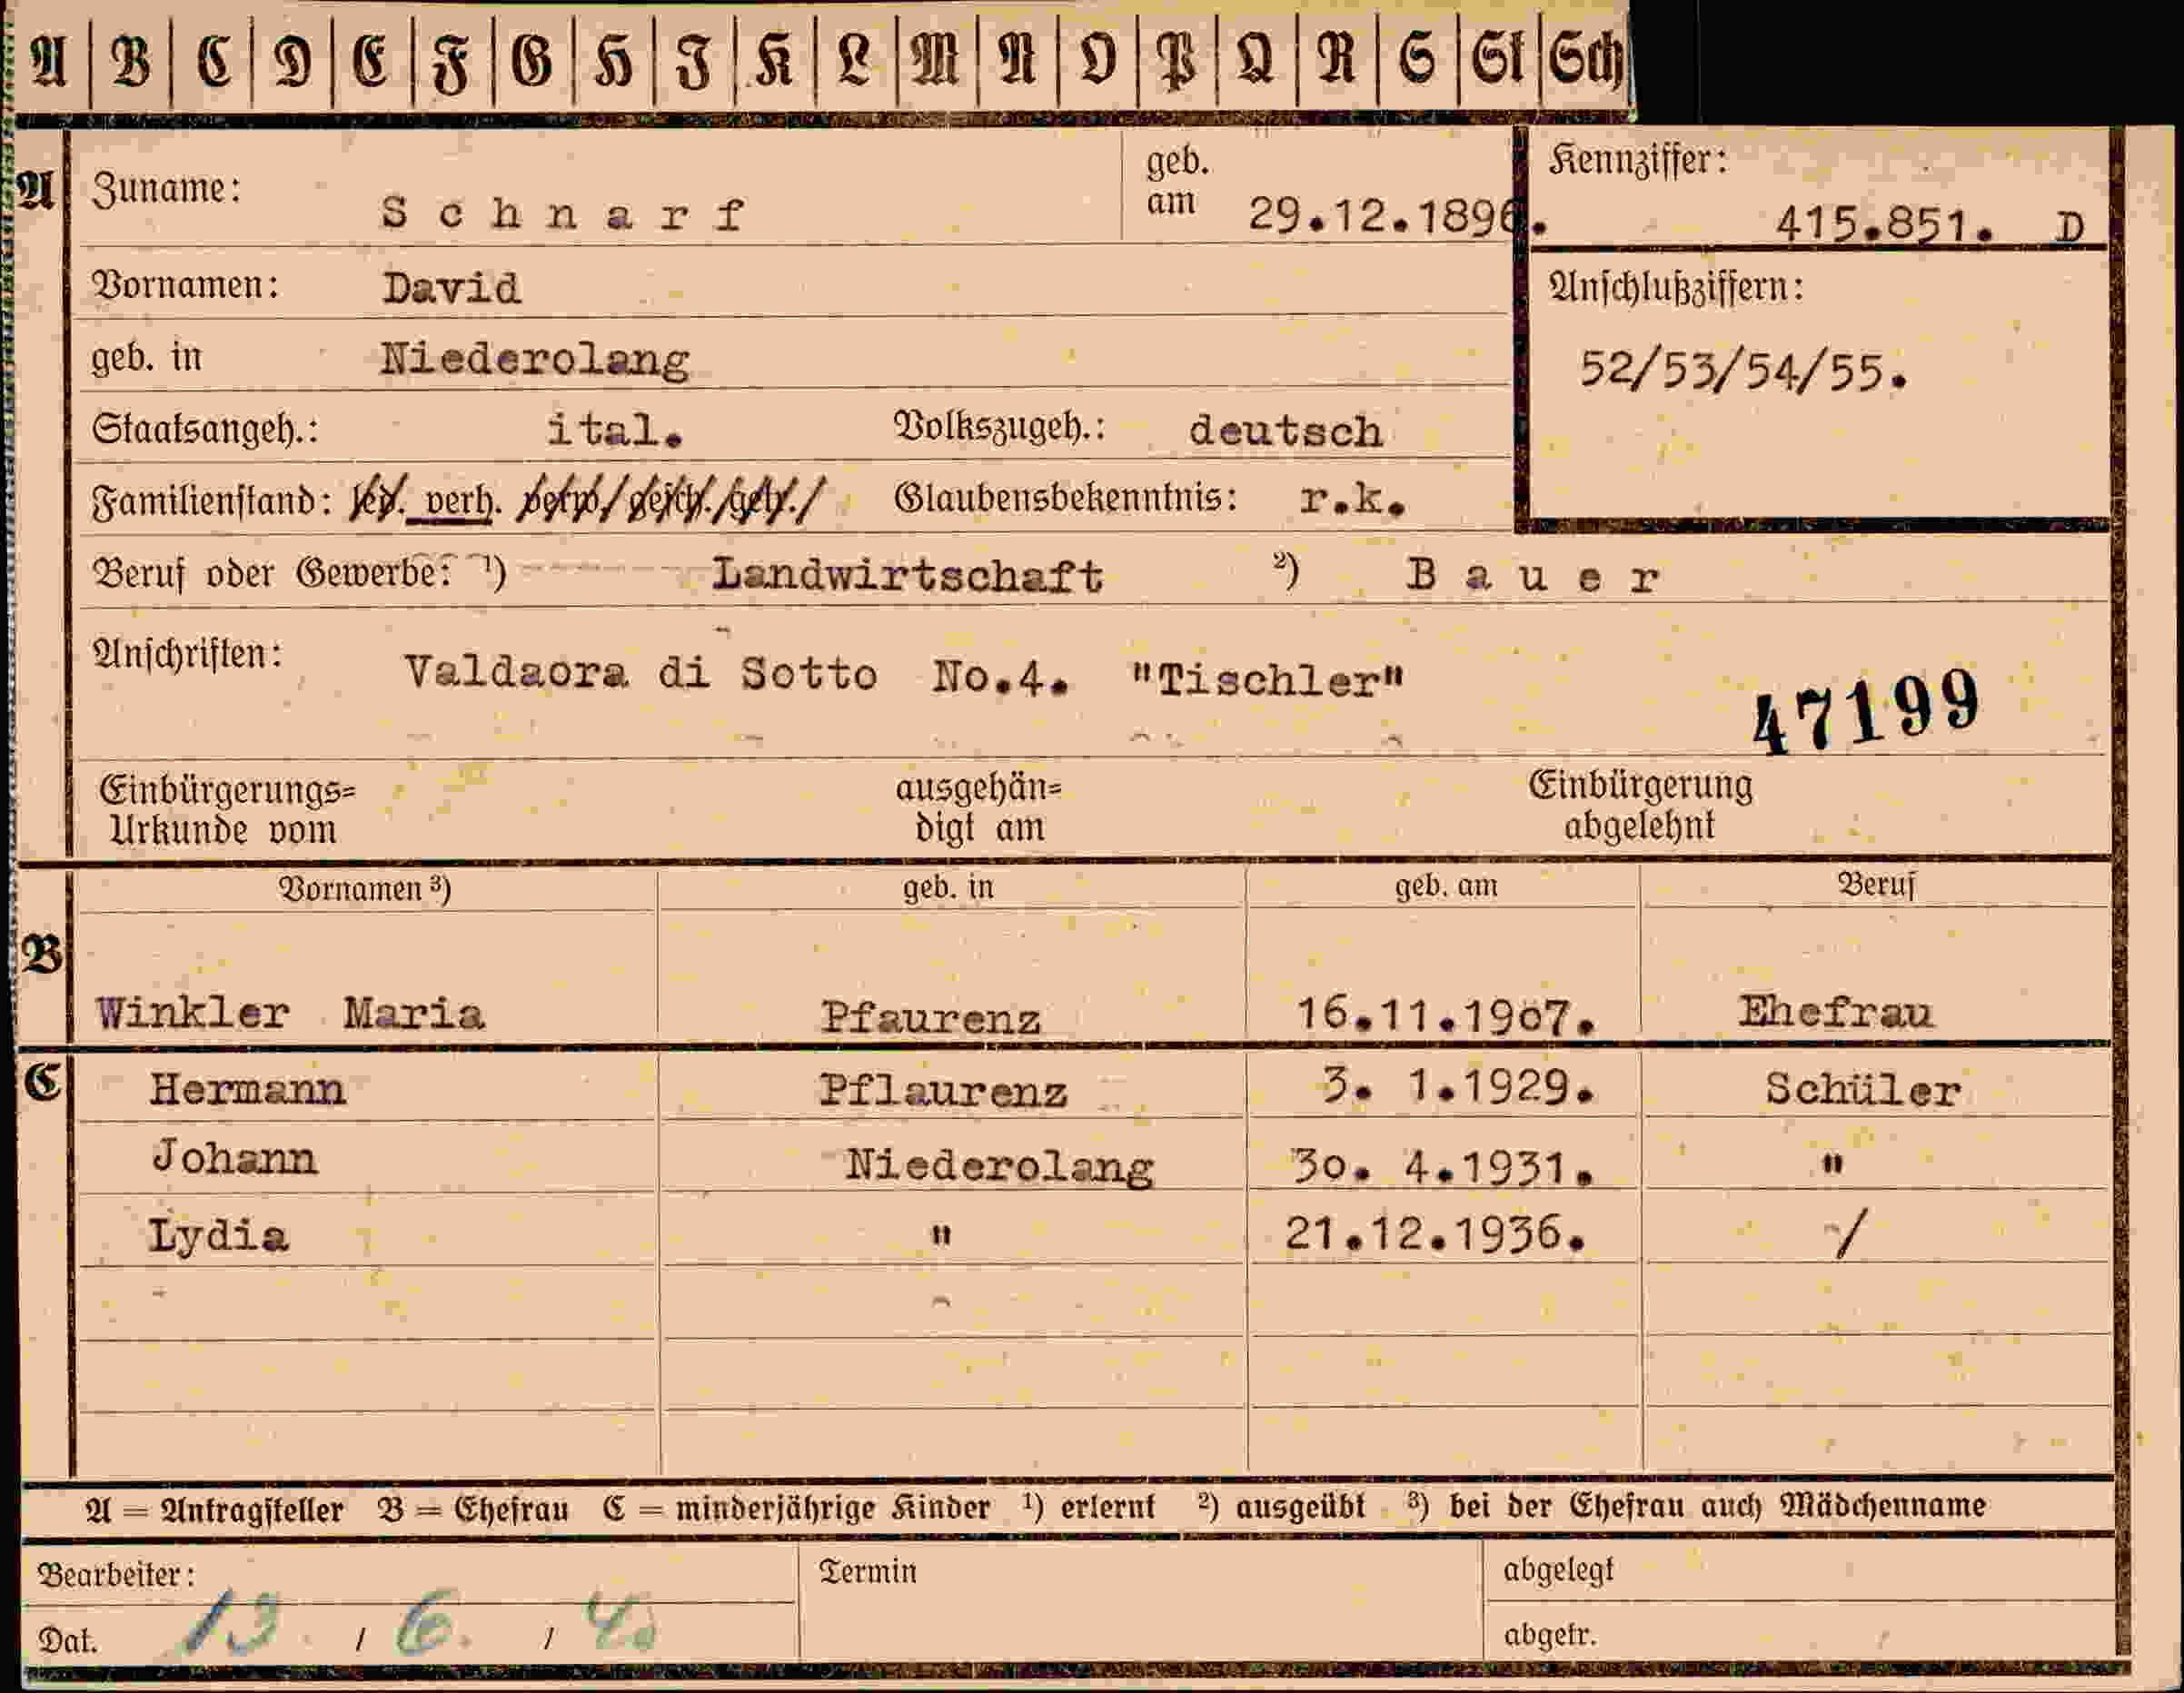 A | B | C | D | E | F | G | H | J | K | L | M | N | O | P | Q | R | S | St | Sch
A Zuname: Schnarf geb. am 29.12.1896. Kennziffer: 415.851. D
Vornamen: David Anschlußziffern:
geb. in Niederolang 52/53/54/55.
Staatsangeh.: ital. Volkszugeh.: deutsch
Familienstand: led. verh. verw./gesch./getr./ Glaubensbekenntnis: r.k.
Beruf oder Gewerbe: ¹) Landwirtschaft ²) Bauer
Anschriften: Valdaora di Sotto No.4. "Tischler"
47199
Einbürgerungs= ausgehän= Einbürgerung
Urkunde vom digt am abgelehnt
Vornamen ³) geb. in geb. am Beruf
B
Winkler Maria Pfaurenz 16.11.1907. Ehefrau
C Hermann Pflaurenz 3. 1.1929. Schüler
Johann Niederolang 30. 4.1931. "
Lydia " 21.12.1936. /
A = Antragsteller B = Ehefrau C = minderjährige Kinder ¹) erlernt ²) ausgeübt ³) bei der Ehefrau auch Mädchenname
Bearbeiter: Termin abgelegt
Dat. 13. / 6. / 40 abgetr.